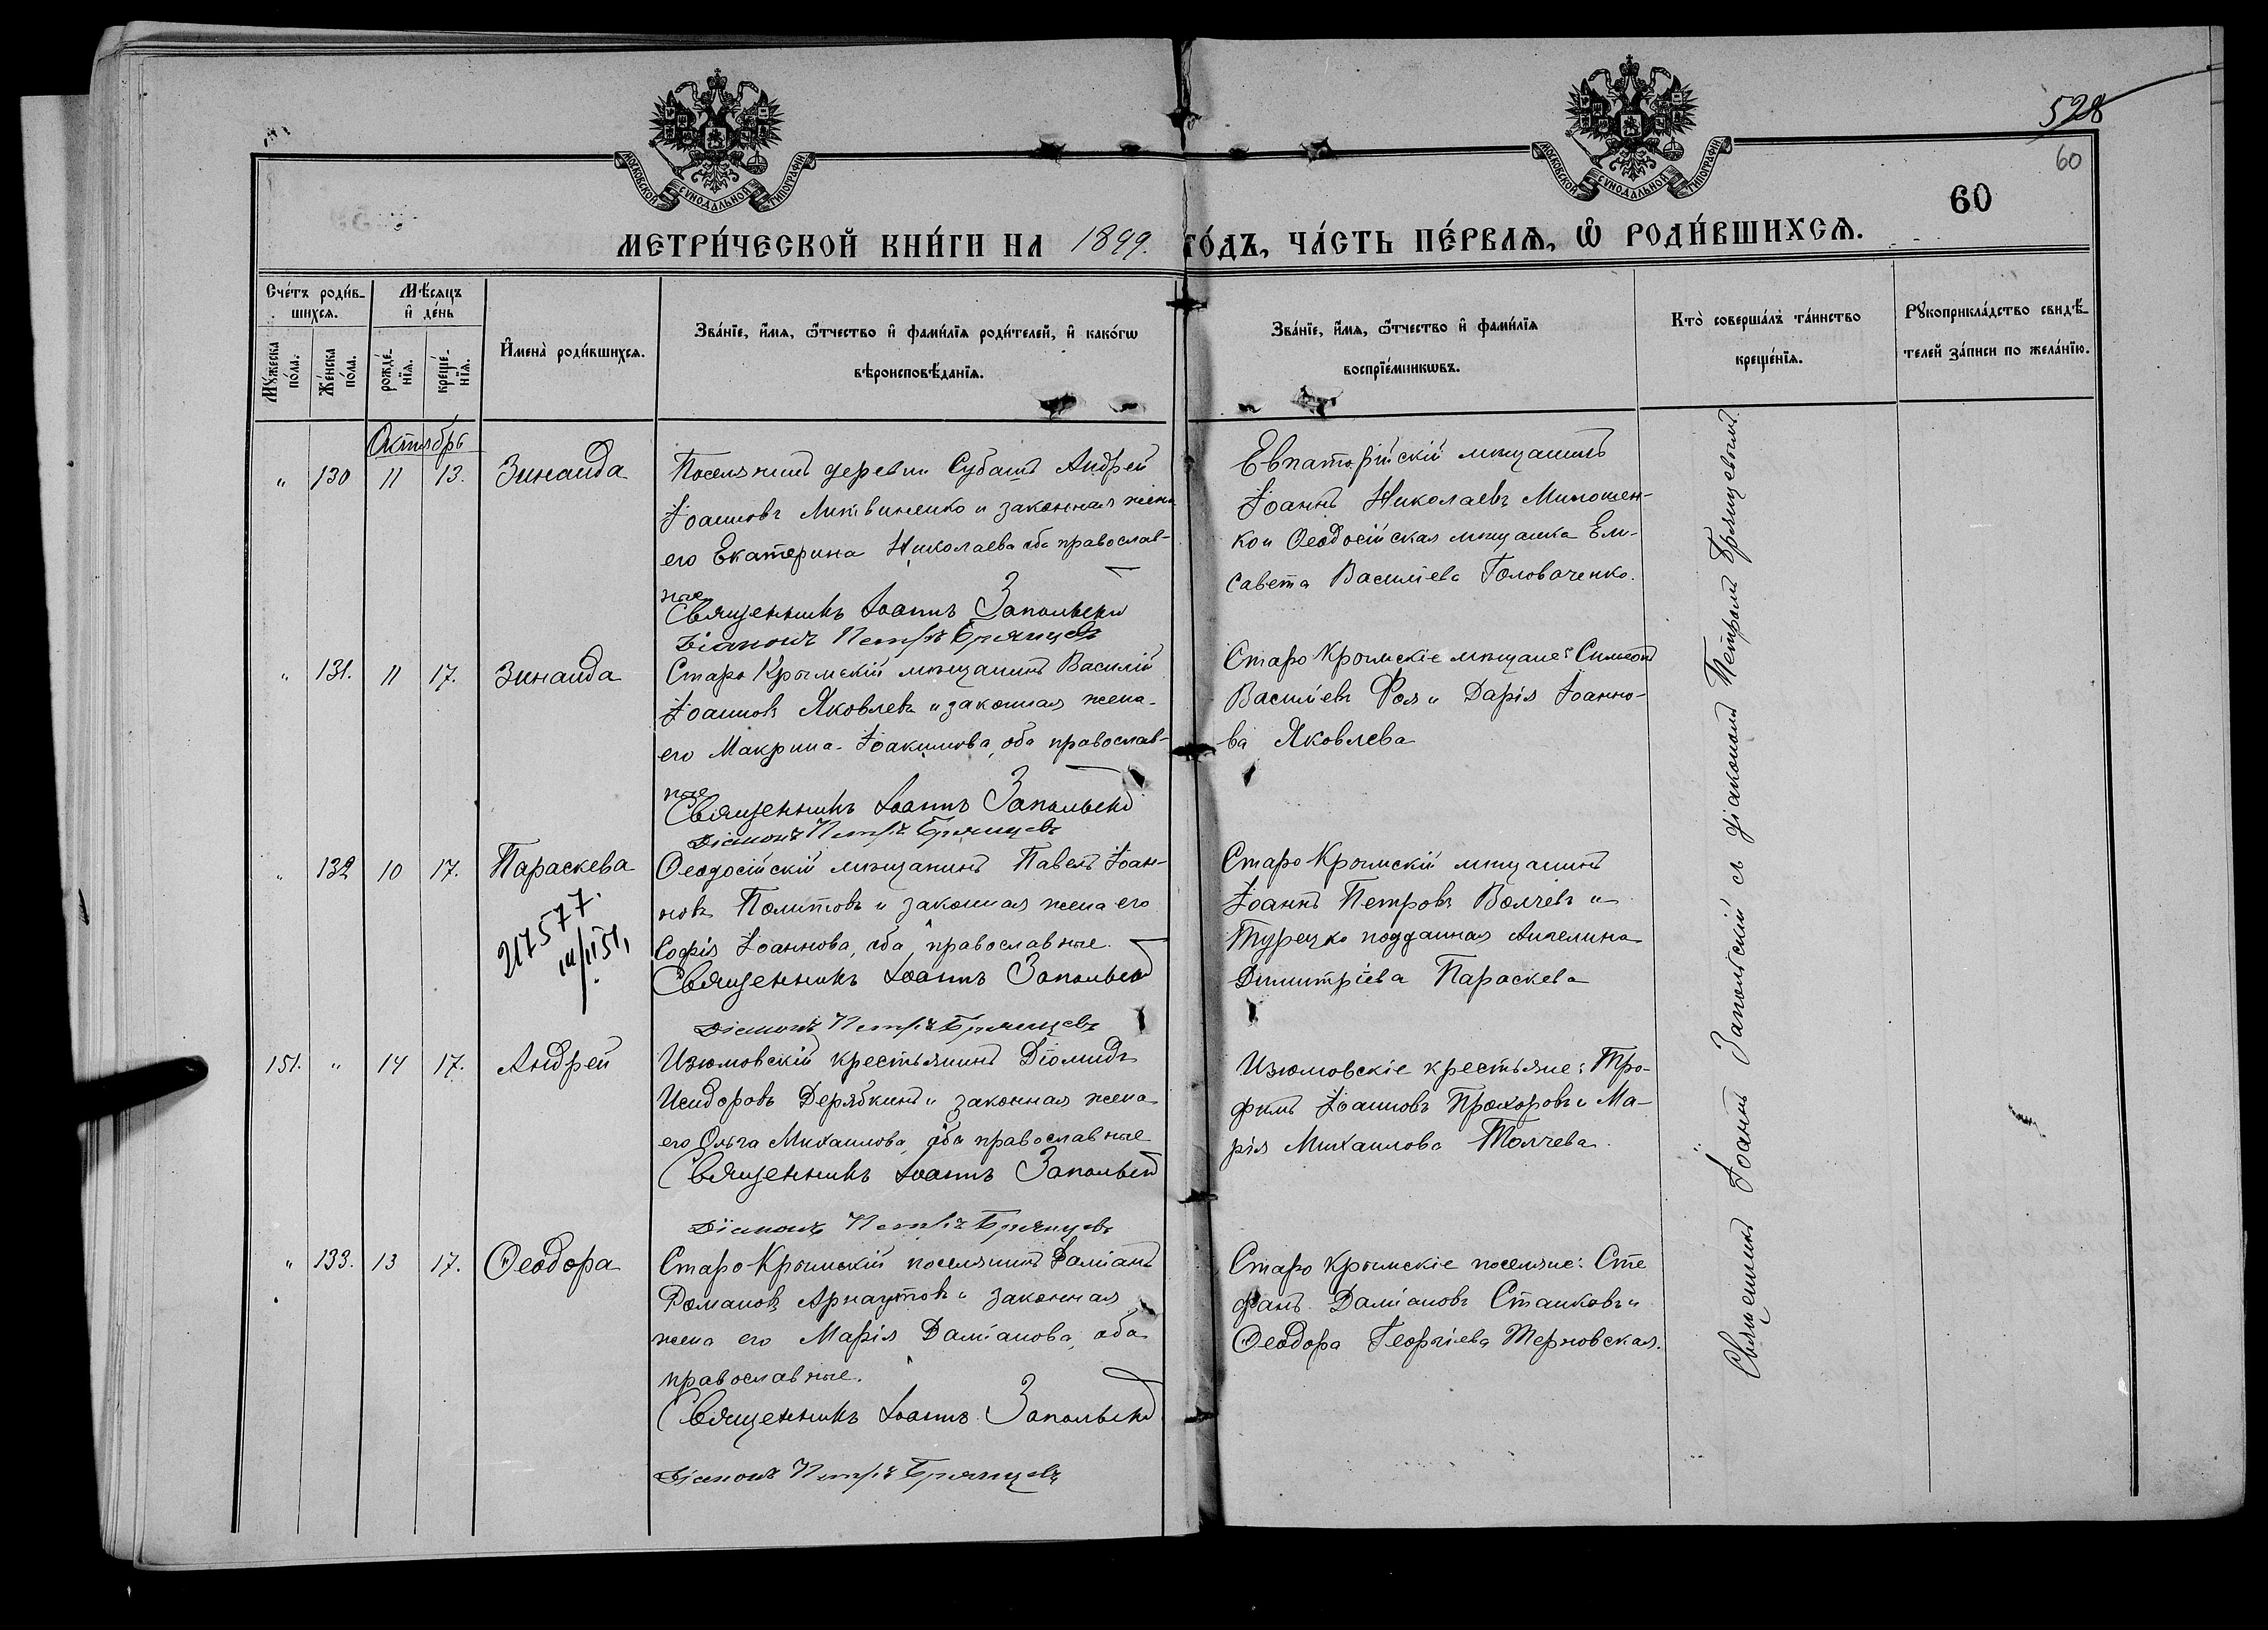 528
60
60
МОСКОВСКОЙ СѴНОДАЛЬНОЙ ТИПОГРАФІИ
МОСКОВСКОЙ СѴНОДАЛЬНОЙ ТИПОГРАФІИ
МЕТРИ́ЧЕСКОЙ КНИ́ГИ НА 1899. ГО́ДЪ, ЧА́СТЬ ПЕ́РВАѦ, Ѡ҆ РОДИ́ВШИХСѦ.
Сче́тъ роди́в-
шихсѧ.
Мꙋжеска по́ла.
Же́нска по́ла.
Мѣ́сѧцъ
и҆ де́нь
рожде́-нїѧ.
креще́-нїѧ.
И҆мена̀ роди́вшихсѧ.
Зва́нїе, и҆́мѧ, ѻ҆́тчество и҆ фами́лїѧ роди́телей, и҆ како́гѡ
вѣроисповѣ́данїѧ.
Зва́нїе, и҆́мѧ, ѻ҆́тчество и҆ фами́лїѧ
воспрїе́мникѡвъ.
Кто̀ соверша́лъ та́инство
креще́нїѧ.
Рꙋкоприкла́дство свидѣ́-
телей за́писи по жела́нїю.
Октябрь
" 130 11 13. Зинаида
Поселянинъ деревни Субашъ Андрей
Іоанновъ Литвиненко и законная жена
его Екатерина Николаева оба православ-
ные
Священникъ Іоаннъ Запольскій
Діаконъ Петръ Брянцевъ
Евпаторійскій мѣщанинъ
Іоаннъ Николаевъ Милошен-
ко и Ѳеодосійская мѣщанка Ели-
савета Василіева Головаченко.
" 131. 11 17. Зинаида
Старо Крымскій мѣщанинъ Василій
Іоанновъ Яковлевъ и законная жена
его Макрина Іоакимова, оба православ-
ные
Священникъ Іоаннъ Запольскій
Діаконъ Петръ Брянцевъ
Старо Крымскіе мѣщане: Симеонъ
Василіевъ Роя и Дарія Іоанно-
ва Яковлева
" 132 10 17. Параскева
217577.
Ѳеодосійскій мѣщанинъ Павелъ Іоан-
новъ Политовъ и законная жена его
Софія Іоаннова, оба православные.
Священникъ Іоаннъ Запольскій
Діаконъ Петръ Брянцевъ
Старо Крымскій мѣщанинъ
Іоаннъ Петровъ Волчевъ и
Турецко подданная Ангелина
Димитріева Параскева
151. " 14 17. Андрей
Изюмовскій крестьянинъ Діомидъ
Исидоровъ Дерябкинъ и законная жена
его Ольга Михаилова, оба православные
Священникъ Іоаннъ Запольскій
Діаконъ Петръ Брянцевъ
Изюмовскіе крестьяне: Тро-
фимъ Іоанновъ Прохоровъ и Ма-
рія Михаилова Толчева.
" 133. 13 17. Ѳеодора
Старо-Крымскій поселянинъ Даміанъ
Романовъ Арнаутовъ и законная
жена его Марія Даміанова, оба
православные.
Священникъ Іоаннъ Запольскій
Діаконъ Петръ Брянцевъ
Старо Крымскіе поселяне: Сте
фанъ Даміановъ Станковъ и
Ѳеодора Георгіева Терновская.
Священникъ Іоаннъ Запольскій съ діакономъ Петромъ Брянцевымъ